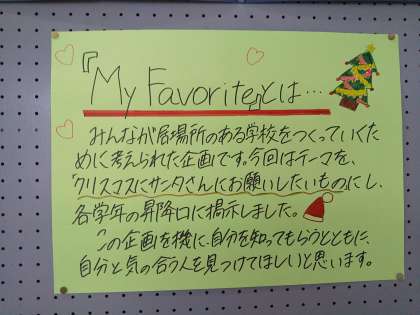 『My Favorite』とは…
みんなが居場所のある学校をつくっていくた
めに考えられた企画です。今回はテーマを、
「クリスマスにサンタさんにお願いしたいもの」にし、
各学年の昇降口に掲示しました。
この企画を機に、自分を知ってもらうとともに、
自分と気の合う人を見つけてほしいと思います。